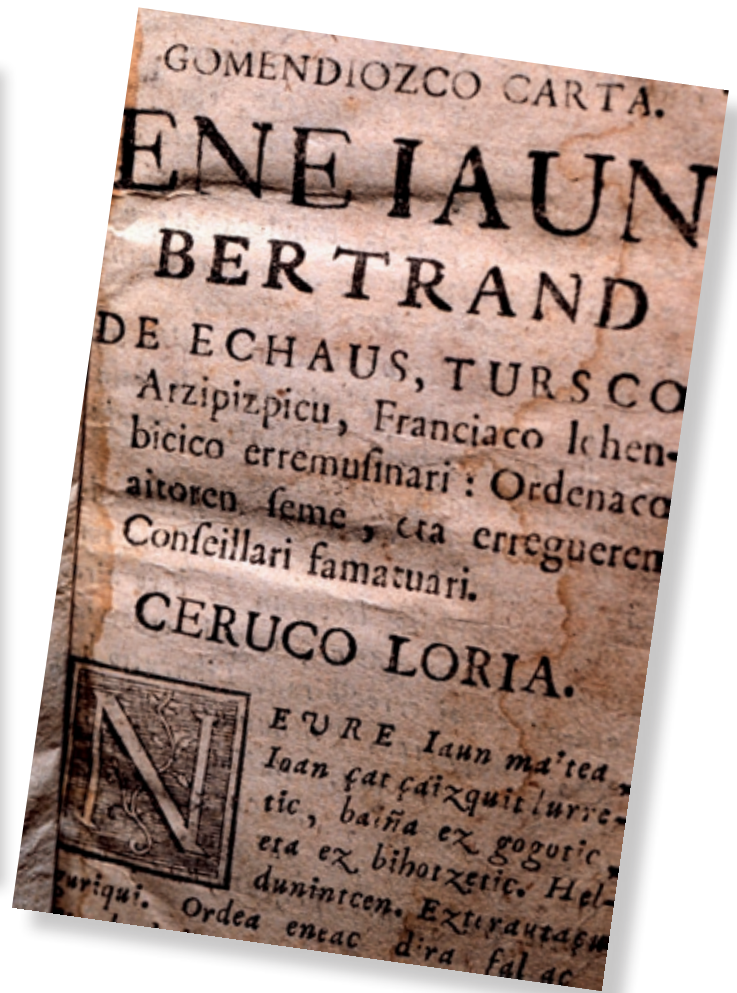 GOMENDIOZCO CARTA.
ENE IAUN
BERTRAND
DE ECHAUS, TURSCO
Arzipizpicu, Franciaco lehen-
bicico erremuſinari : Ordenaco
aitoren ſeme, eta erregueren
Conſeillari famatuari.
CERUCO LORIA.
NEURE Iaun maitea,
Ioan çat çaizquit lurre-
tic, baiña ez gogotic,
eta ez bihotzetic. Hel-
dunintcen.
guriqui. Ordea eneac dira fal